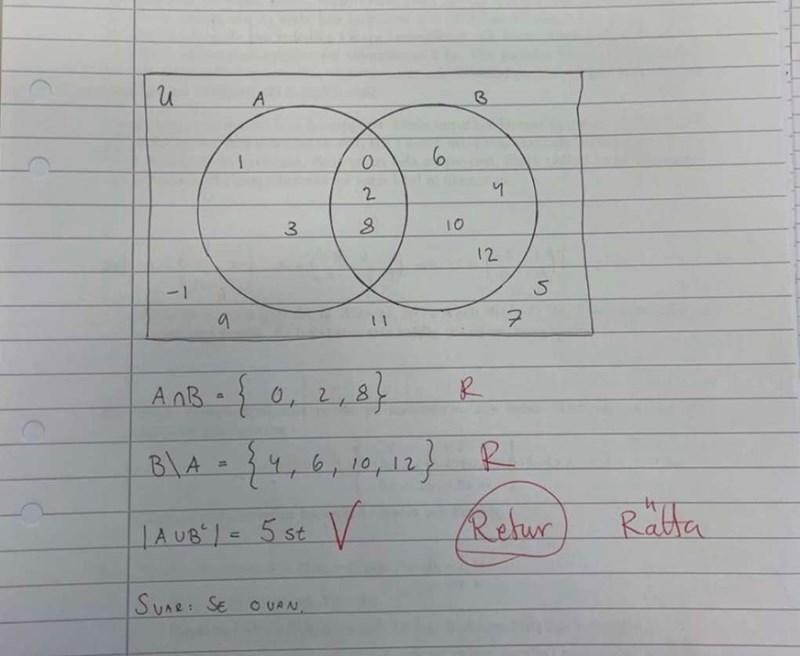 U A B
1 0 6
2 4
3 8 10
12
-1 5
9 11 7
A∩B = { 0, 2, 8} R
B\A = { 4, 6, 10, 12 } R
|A∪Bᶜ| = 5 st V Retur Rätta
SVAR: SE OVAN.